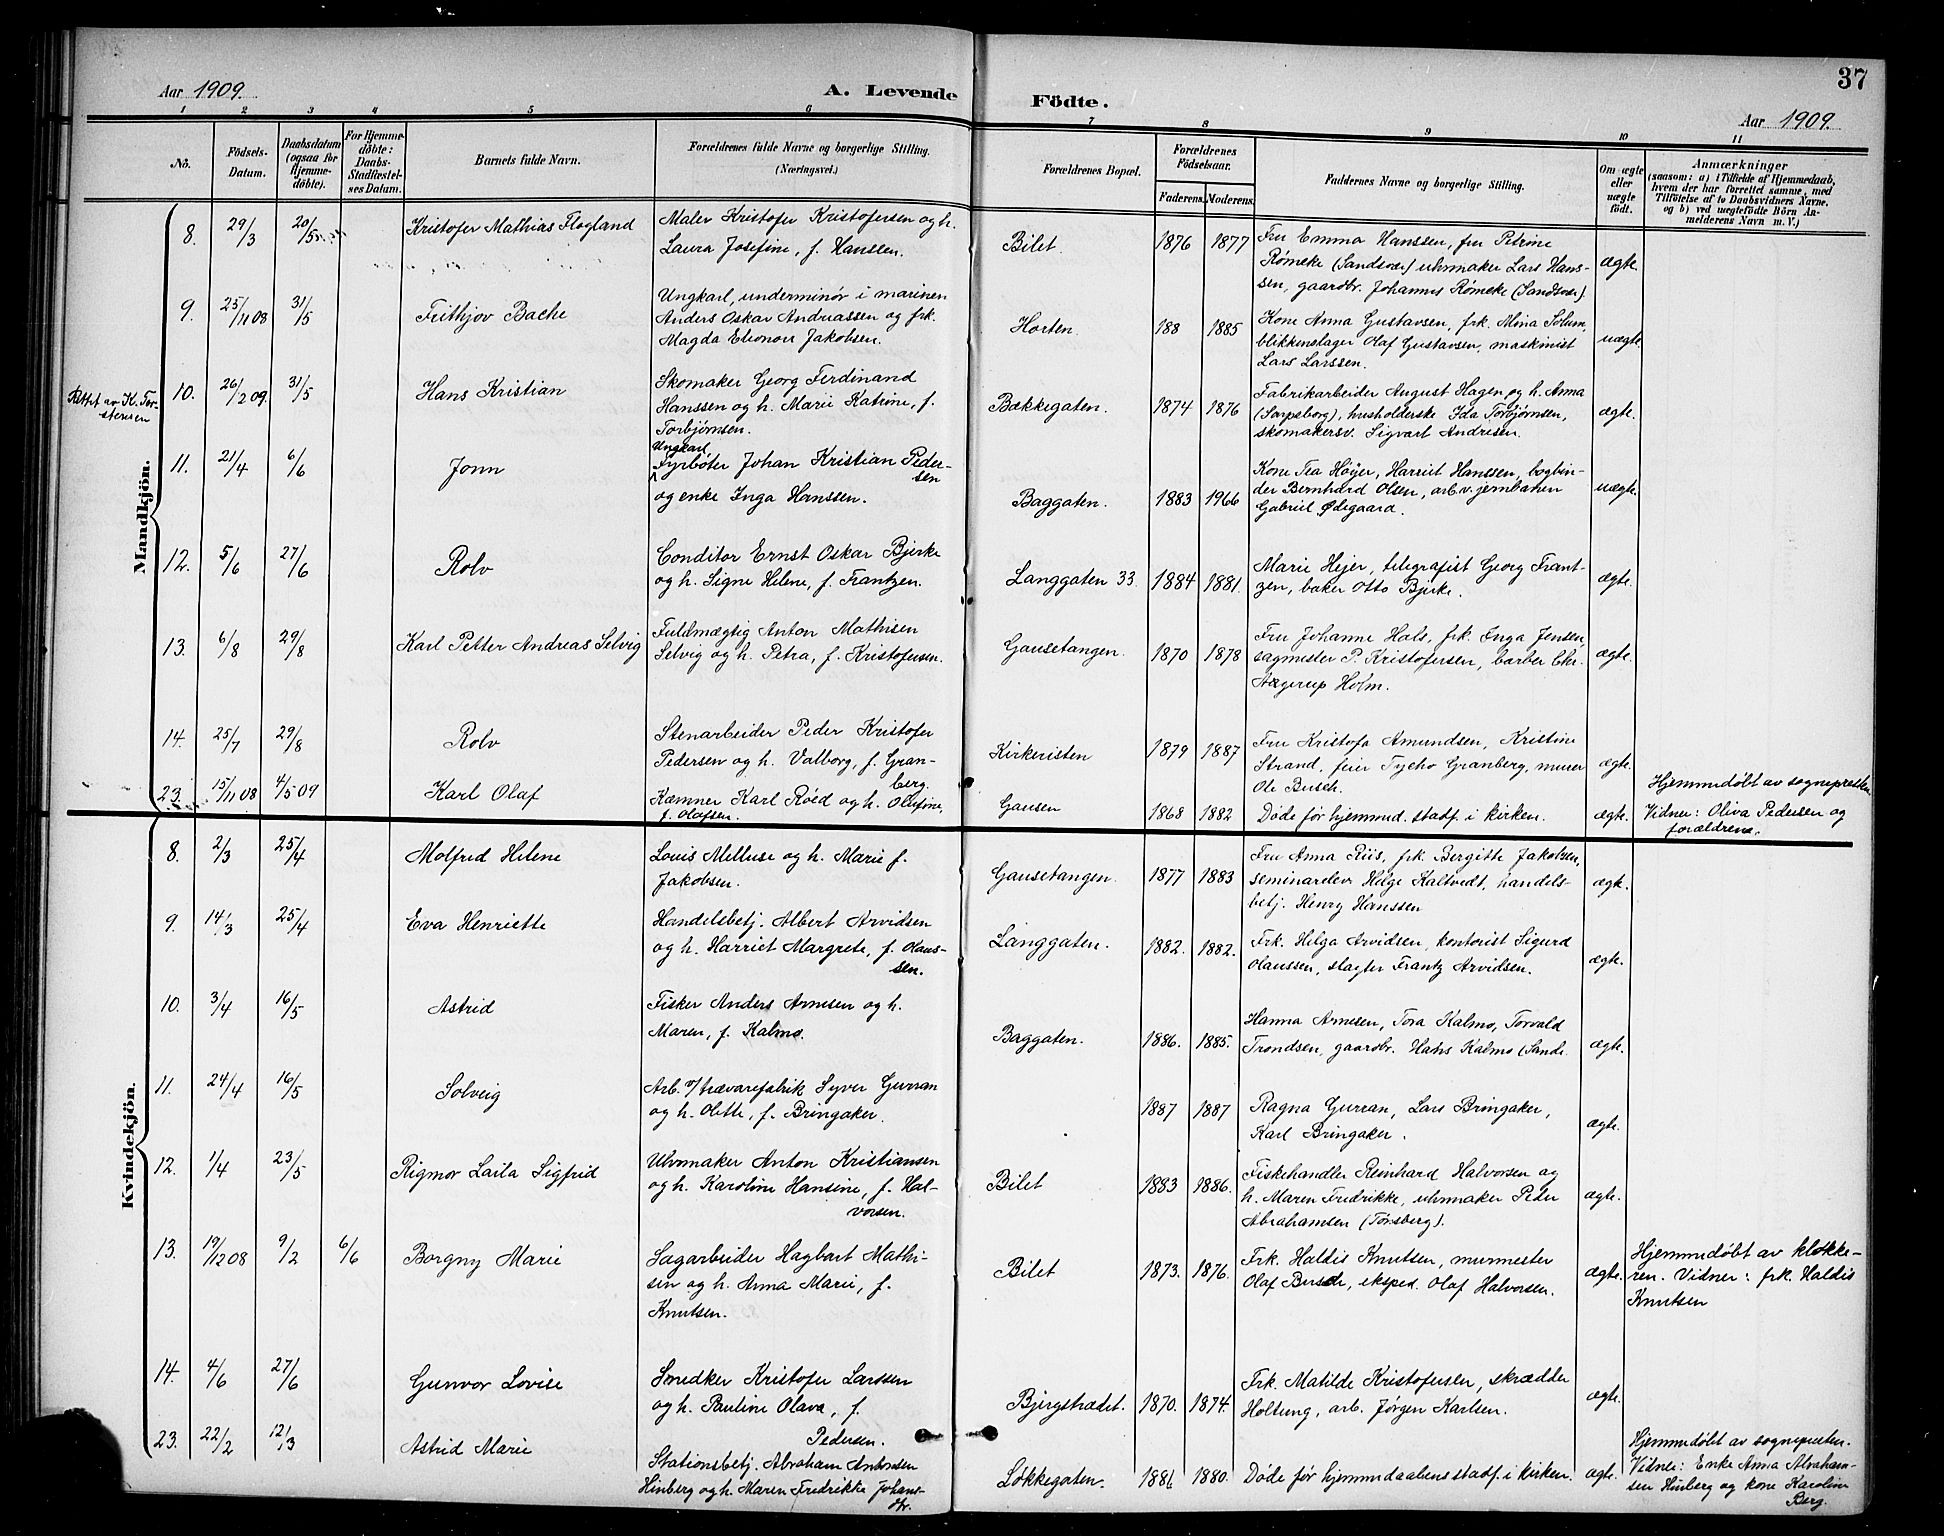 37
Aar 1909.
A. Levende
Födte.
Aar 1909.
1 2 3 4 5 6 7 8 9 10 11
No.
Födsels-
Datum.
Daabsdatum
(ogsaa for
Hjemme-
döbte).
For Hjemme-
döbte:
Daabs-
Stadfæstel-
ses Datum.
Barnets fulde Navn.
Forældrenes fulde Navne og borgerlige Stilling.
(Næringsvei.)
Forældrenes Bopæl.
Forældrenes
Födselsaar.
Faderens. Moderens.
Faddernes Navne og borgerlige Stilling.
Om ægte
eller
uægte
födt.
Anmærkninger
(saasom: a) i Tilfælde af Hjemmedaab,
hvem der har forrettet samme, med
Tilföielse af to Daabsvidners Navne.
og b) ved uægtefödte Börn An-
melderens Navn m. V.)
Mandkjön.
8. 29/3 20/5 Kristofer Mathias Flogland
Maler Kristofer Kristofersen og h.
Laura Josefine, f. Hanssen.
Bilet 1876 1877
Fru Emma Hanssen, fru Petrine
Rømeke (Sandsvær) uhrmaker Lars Hans-
sen, gaardbr. Johannes Rømeke (Sandsvær).
ægte.
9. 25/11 08 31/5 Frithjov Bache
Ungkarl, underminör i marinen
Anders Oskar Andreassen og frk.
Magda Elionore Jakobsen.
Horten. 188 1885
Kone Anna Gustavsen, frk. Mina Solum,
blikkenslager Olaf Gustavsen, maskinist
Lars Larssen.
uægte.
Rettet av K. Tor-
stensen
10. 26/2 09 31/5 Hans Kristian
Skomaker Georg Ferdinand
Hanssen og h. Marie Katrine, f.
Torbjørnsen.
Bakkegaten. 1874 1876
Fabrikarbeider August Hagen og h. Anna
(Sarpsborg), husholderske Ida Torbjørnsen,
skomakersv. Sigvart Andresen.
ægte.
11. 21/4 6/6 Jonn
Ungkarl,
Fyrbøter Johan Kristian Peder-
sen
og enke Inga Hanssen.
Baggaten. 1883 1966
Kone Tea Høyer, Harriet Hanssen, bogbin-
der Bernhard Olsen, arb. v. jernbanen
Gabriel Ødegaard.
uægte.
12. 5/6 27/6 Rolv
Conditor Ernst Oskar Bjerke
og h. Signe Helene, f. Frantzen.
Langgaten 33. 1884 1881.
Marie Hejer, telegrafist Georg Frant-
zen, baker Otto Bjerke.
ægte.
13. 6/8 29/8 Karl Petter Andreas Selvig
Fuldmægtig Anton Mathisen
Selvig og h. Petra, f. Kristofersen.
Gausetangen. 1870 1878
Fru Johanne Hals, frk. Inga Jensen,
sagmester P. Kristofersen, barber Chr.
Aagerup Holm.
ægte.
14. 25/7 29/8 Rolv
Stenarbeider Peder Kristofer
Pedersen og h. Valborg, f. Gran-
berg.
Kirkeristen 1879 1887
Fru Kristofa Amundsen, Kristine
Strand, feier Tycho Granberg, murer
Ole Busch.
ægte.
23. 15/11 08 4/5 09 Karl Olaf
Kæmner Karl Röed og h. Olufine,
f. Olafsen.
Gausen 1868 1882
Døde før hjemmed. stadf. i kirken.
ægte.
Hjemmedøbt av sognepresten
Vidner: Oliva Pedersen og
forældrene.
Kvindekjön.
8. 2/3 25/4 Molfrid Helene
Louis Melluse og h. Marie f.
Jakobsen.
Gausetangen. 1877 1883
Fru Anna Riis, frk. Bergitte Jakobsen,
seminarelev Helge Kaltvedt, handels-
betj. Henry Hanssen
ægte.
9. 14/3 25/4 Eva Henriette
Handelsbetj. Albert Arvidsen
og h. Harriet Margrete, f. Olaus-
sen.
Langgaten. 1882. 1882.
Frk. Helga Arvidsen, kontorist Sigurd
Olaussen, slagter Frantz Arvidsen.
ægte.
10. 3/4 16/5 Astrid
Fisker Anders Arnesen og h.
Maren, f. Kalmo.
Baggaten. 1886. 1885.
Hanna Arnesen, Tora Kalmo, Torvald
Trondsen, gaardbr. Hans Kalmo (Sande.
ægte.
11. 24/4 16/5 Solveig
Arb. v/ trævarefabrik Syver Gurran
og h. Olette, f. Bringaker.
1887 1887
Ragna Gurran, Lars Bringaker,
Karl Bringaker.
ægte.
12. 1/4 23/5 Rigmor Laila Sigfrid
Uhrmaker Anton Kristiansen
og h. Karoline Hansine, f. Hal-
vorsen.
Bilet 1883 1886.
Fiskehandler Reinhard Halvorsen og
h. Maren Fredrikke, uhrmaker Peder
Abrahamsen (Tønsberg).
ægte.
13. 19/12 08 9/2 6/6 Borgny Marie
Sagarbeider Hagbart Mathi-
sen og h. Anna Marie, f.
Knutsen.
Bilet 1873. 1876.
Frk. Haldis Knutsen, murmester
Olaf Busch, eksped. Olaf Halvorsen.
ægte.
Hjemmedøbt av klokke-
ren. Vidner: frk. Haldis
Knutsen
14. 4/6 27/6 Gunvor Lovise
Snedker Kristofer Larssen
og h. Pauline Olava, f.
Pedersen.
Bjergstrædet. 1870. 1874.
Frk. Matilde Kristofersen, skrædder
Holtung, arb. Jørgen Karlsen.
ægte.
23. 22/2 12/3 Astrid Marie
Stationsbetj. Abraham Andresen
Hinberg og h. Maren Fredrikke Johans-
dtr.
Løkkegaten. 1886 1880.
Døde før hjemmedaabens stadf. i kirken.
ægte.
Hjemmedøbt av sognepresten.
Vidner: Enke Anna Abraham-
sen Hinberg og kone Karoline
Berg.